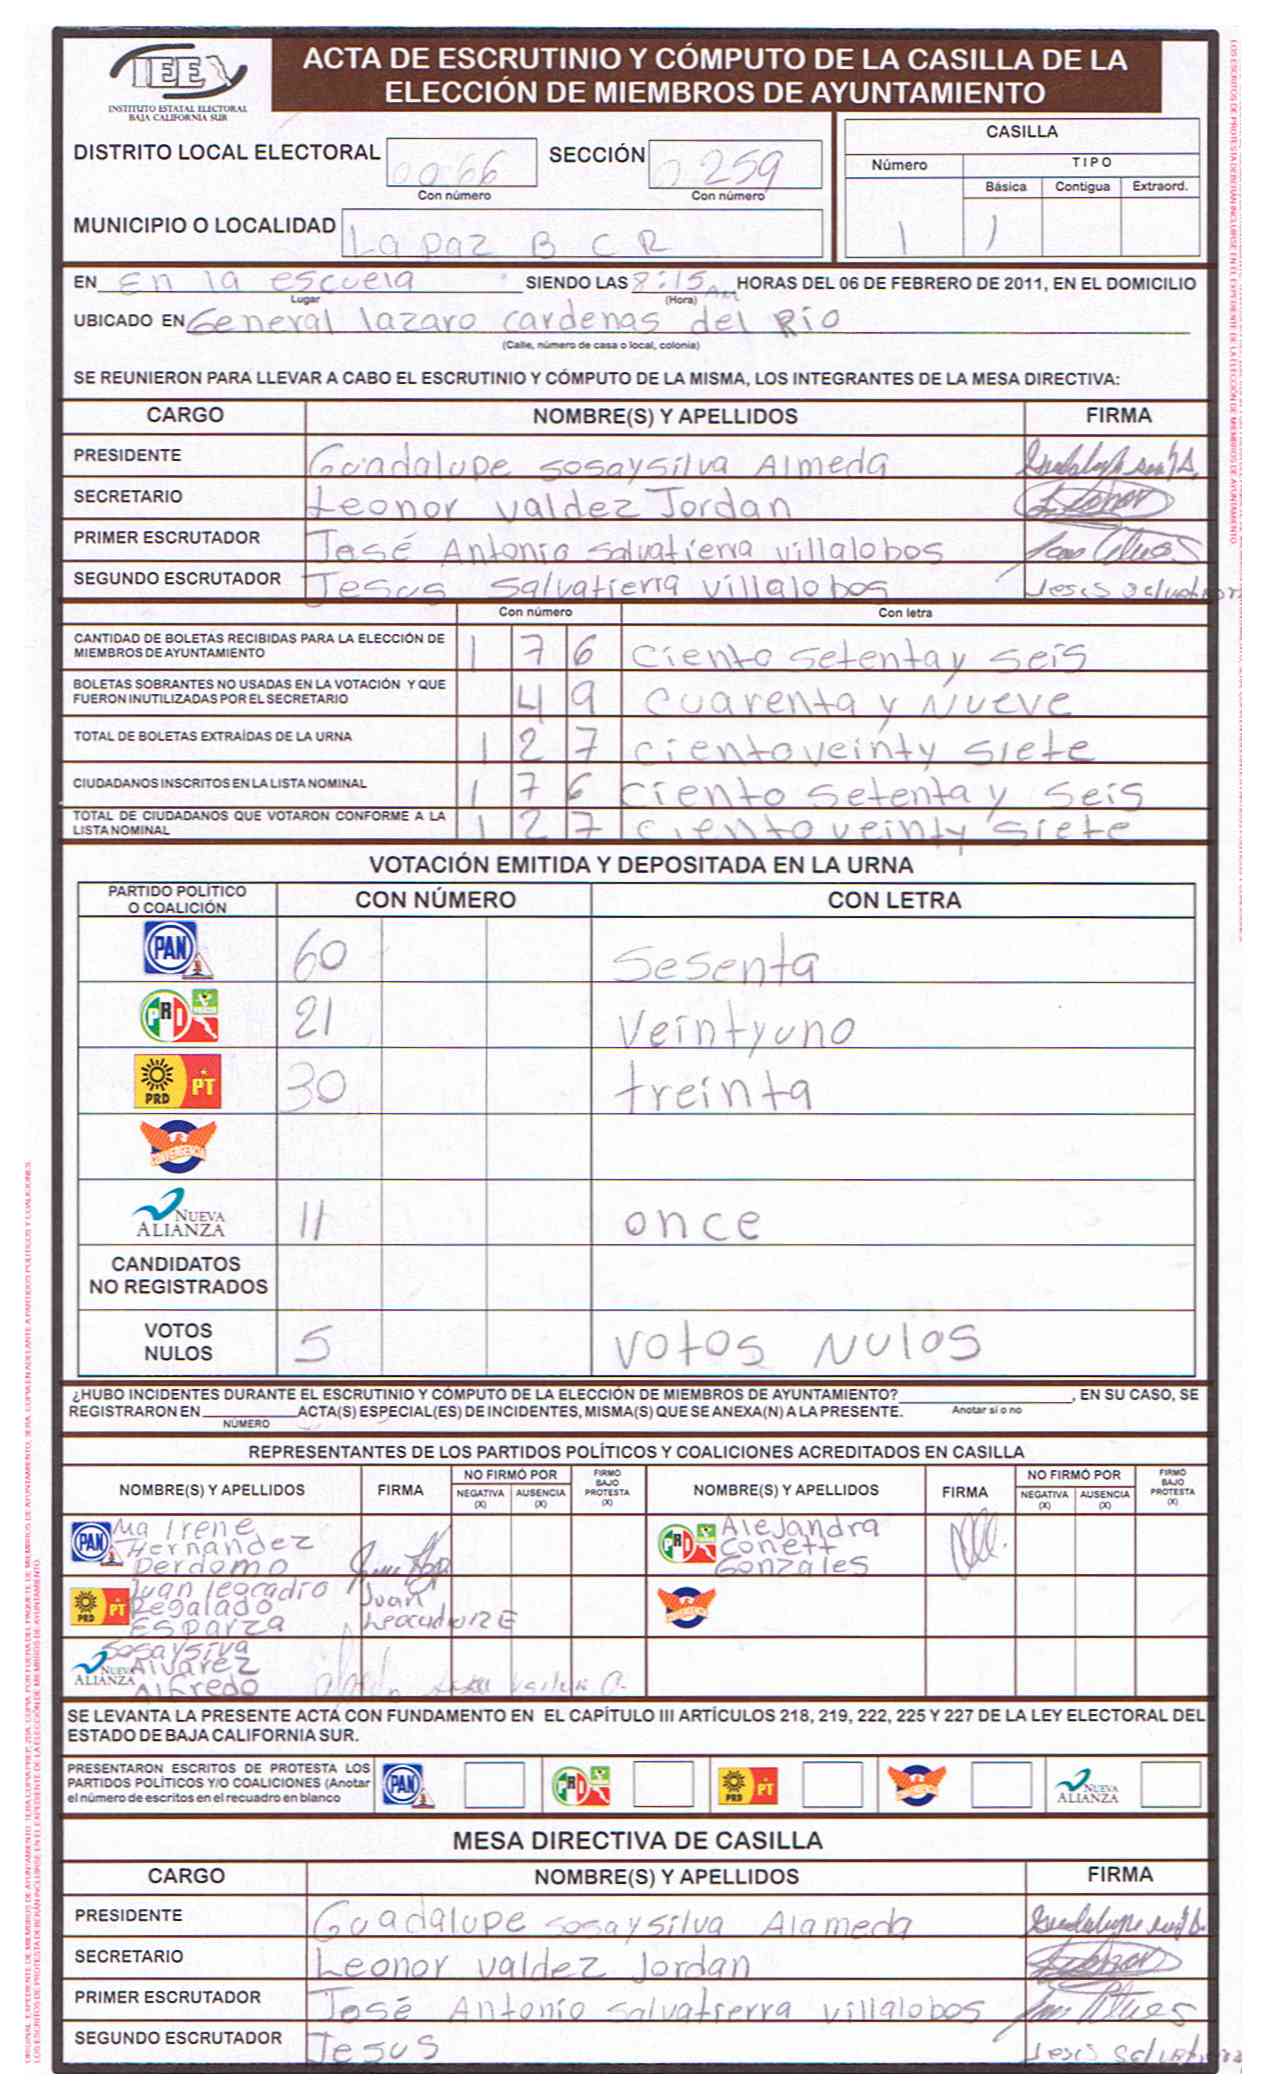 IEE
INSTITUTO ESTATAL ELECTORAL
BAJA CALIFORNIA SUR
ACTA DE ESCRUTINIO Y CÓMPUTO DE LA CASILLA DE LA
ELECCIÓN DE MIEMBROS DE AYUNTAMIENTO
DISTRITO LOCAL ELECTORAL 0066 SECCIÓN 0259
Con número Con número
MUNICIPIO O LOCALIDAD La paz B C R
CASILLA
Número TIPO
Básica Contigua Extraord.
1 1
EN En la escuela SIENDO LAS 8:15 AM HORAS DEL 06 DE FEBRERO DE 2011, EN EL DOMICILIO
Lugar (Hora)
UBICADO EN General lazaro cardenas del Río
(Calle, número de casa o local, colonia)
SE REUNIERON PARA LLEVAR A CABO EL ESCRUTINIO Y CÓMPUTO DE LA MISMA, LOS INTEGRANTES DE LA MESA DIRECTIVA:
CARGO NOMBRE(S) Y APELLIDOS FIRMA
PRESIDENTE Guadalupe sosaysilva Almeda
SECRETARIO Leonor valdez Jordan Leonor
PRIMER ESCRUTADOR José Antonio salvatierra villalobos
SEGUNDO ESCRUTADOR Jesus salvatierra villalobos
Con número Con letra
CANTIDAD DE BOLETAS RECIBIDAS PARA LA ELECCIÓN DE
MIEMBROS DE AYUNTAMIENTO 1 7 6 ciento setenta y seis
BOLETAS SOBRANTES NO USADAS EN LA VOTACIÓN Y QUE
FUERON INUTILIZADAS POR EL SECRETARIO 4 9 cuarenta y Nueve
TOTAL DE BOLETAS EXTRAÍDAS DE LA URNA 1 2 7 cientoveinty siete
CIUDADANOS INSCRITOS EN LA LISTA NOMINAL 1 7 6 ciento setenta y seis
TOTAL DE CIUDADANOS QUE VOTARON CONFORME A LA
LISTA NOMINAL 1 2 7 ciento veinty siete
VOTACIÓN EMITIDA Y DEPOSITADA EN LA URNA
PARTIDO POLÍTICO
O COALICIÓN CON NÚMERO CON LETRA
PAN 60 sesenta
PRI 21 veintyuno
PRD PT 30 treinta
CONVERGENCIA
NUEVA
ALIANZA 11 once
CANDIDATOS
NO REGISTRADOS
VOTOS
NULOS 5 votos NUlos
¿HUBO INCIDENTES DURANTE EL ESCRUTINIO Y CÓMPUTO DE LA ELECCIÓN DE MIEMBROS DE AYUNTAMIENTO? , EN SU CASO, SE
REGISTRARON EN ACTA(S) ESPECIAL(ES) DE INCIDENTES, MISMA(S) QUE SE ANEXA(N) A LA PRESENTE. Anotar si o no
NÚMERO
REPRESENTANTES DE LOS PARTIDOS POLÍTICOS Y COALICIONES ACREDITADOS EN CASILLA
NOMBRE(S) Y APELLIDOS FIRMA NO FIRMÓ POR NEGATIVA (X) AUSENCIA (X) FIRMÓ BAJO PROTESTA (X) NOMBRE(S) Y APELLIDOS FIRMA NO FIRMÓ POR NEGATIVA (X) AUSENCIA (X) FIRMÓ BAJO PROTESTA (X)
PAN Ma Irene
Hernandez
Perdomo
PRI Alejandra
Conett
Gonzales
PRD PT Juan leocadio
Regalado
Esparza
Juan
Leocadio R E
CONVERGENCIA
NUEVA
ALIANZA
Sosaysilva
Alvarez
Alfredo
SE LEVANTA LA PRESENTE ACTA CON FUNDAMENTO EN EL CAPÍTULO III ARTÍCULOS 218, 219, 222, 225 Y 227 DE LA LEY ELECTORAL DEL
ESTADO DE BAJA CALIFORNIA SUR.
PRESENTARON ESCRITOS DE PROTESTA LOS
PARTIDOS POLÍTICOS Y/O COALICIONES (Anotar
el número de escritos en el recuadro en blanco
PAN PRI PRD PT CONVERGENCIA NUEVA
ALIANZA
MESA DIRECTIVA DE CASILLA
CARGO NOMBRE(S) Y APELLIDOS FIRMA
PRESIDENTE Guadalupe sosaysilva Alameda
SECRETARIO Leonor valdez Jordan Leonor
PRIMER ESCRUTADOR José Antonio salvatierra villalobos
SEGUNDO ESCRUTADOR Jesus